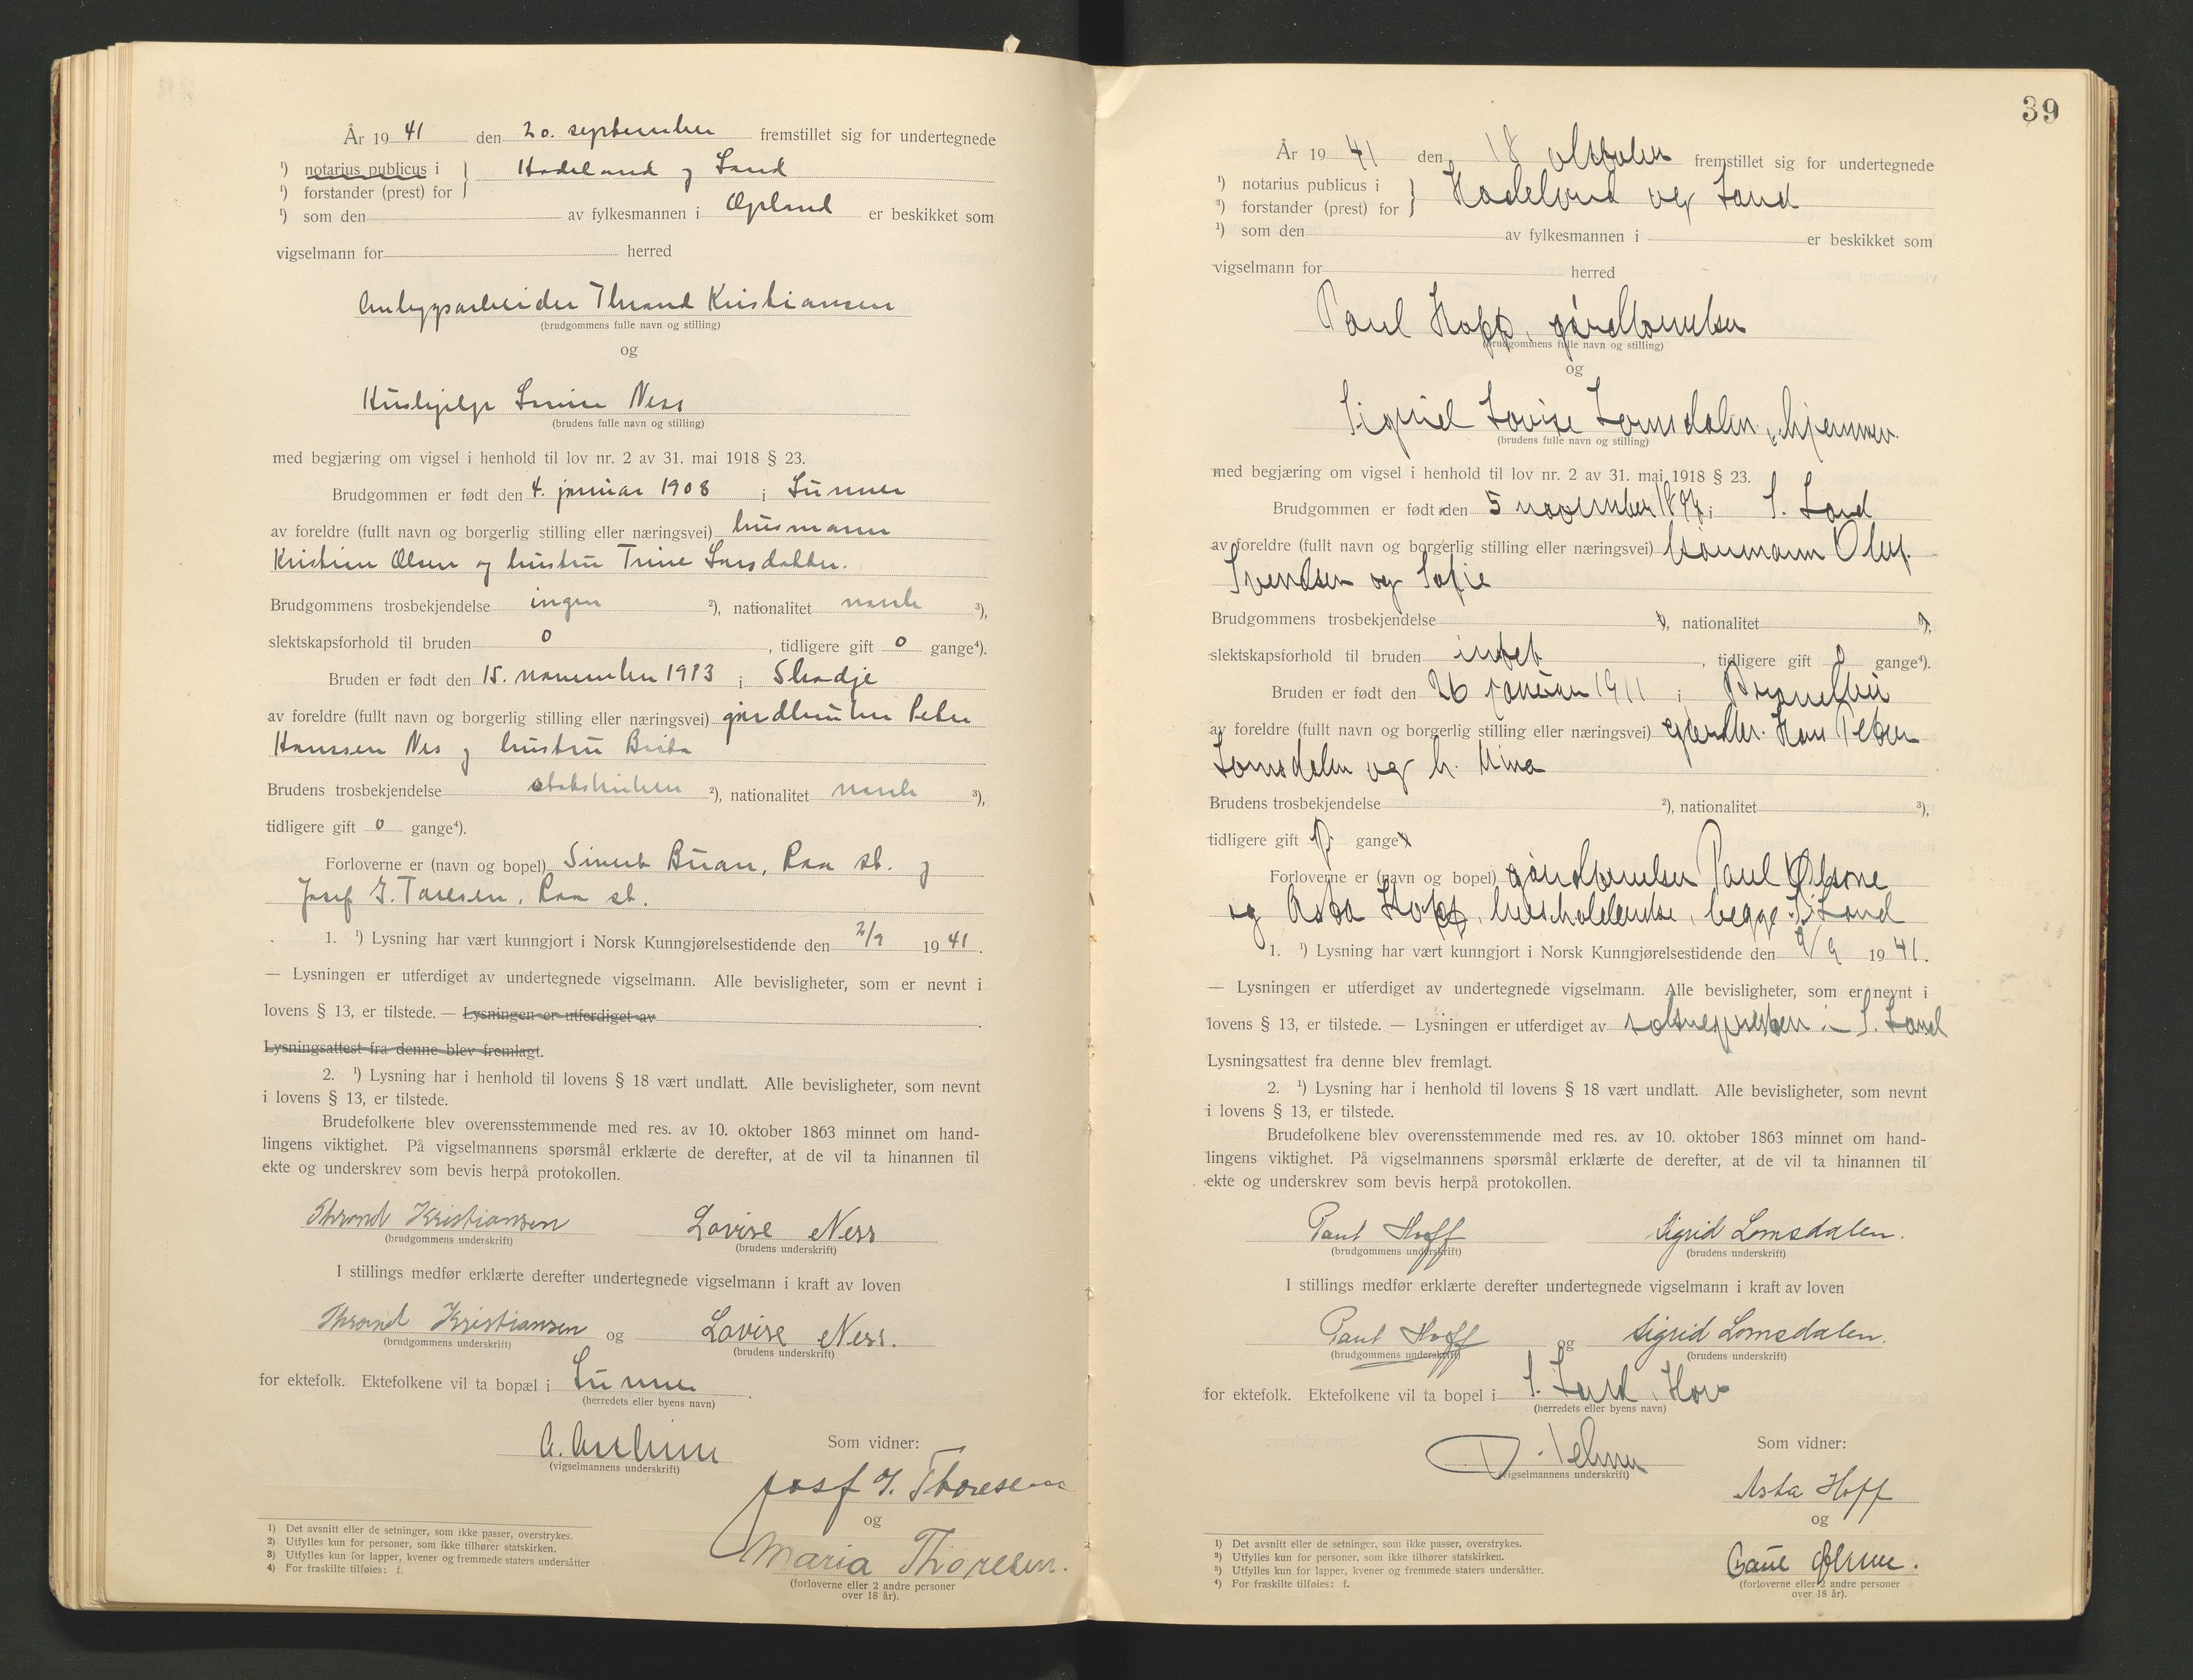 År 19 41 den 20. september fremstillet sig for undertegnede
¹) notarius publicus i } Hadeland og Land
¹) forstander (prest) for
¹) som den av fylkesmannen i Opland er beskikket som
vigselmann for herred
Anleggsarbeider Thrand Kristiansen
(brudgommens fulle navn og stilling)
og
Hushjelp Lovise Ness
(brudens fulle navn og stilling)
med begjæring om vigsel i henhold til lov nr. 2 av 31. mai 1918 § 23.
Brudgommen er født den 4. januar 1908 i Lunner
av foreldre (fullt navn og borgerlig stilling eller næringsvei) husmann
Kristian Olsen og hustru Trine Larsdatter.
Brudgommens trosbekjendelse ingen ²), nationalitet norsk ³),
slektskapsforhold til bruden 0, tidligere gift 0 gange⁴).
Bruden er født den 15. november 1913 i Skodje
av foreldre (fullt navn og borgerlig stilling eller næringsvei) gårdbruker Peter
Hanssen Nes og hustru Brita
Brudens trosbekjendelse statskirken ²), nationalitet norsk ³),
tidligere gift 0 gange⁴).
Forloverne er (navn og bopel) Sivert Buan, Roa st. og
Josef G. Toresen, Roa st.
1. ¹) Lysning har vært kunngjort i Norsk Kunngjørelsestidende den 2/9 19 41.
— Lysningen er utferdiget av undertegnede vigselmann. Alle bevisligheter, som er nevnt i
lovens § 13, er tilstede. — Lysningen er utferdiget av
Lysningsattest fra denne blev fremlagt.
2. ¹) Lysning har i henhold til lovens § 18 vært undlatt. Alle bevisligheter, som nevnt
i lovens § 13, er tilstede.
Brudefolkene blev overensstemmende med res. av 10. oktober 1863 minnet om hand-
lingens viktighet. På vigselmannens spørsmål erklærte de derefter, at de vil ta hinannen til
ekte og underskrev som bevis herpå protokollen.
Thrond Kristiansen Lovise Ness
(brudgommens underskrift) (brudens underskrift)
I stillings medfør erklærte derefter undertegnede vigselmann i kraft av loven
Thrond Kristiansen og Lovise Ness.
(brudgommens underskrift) (brudens underskrift)
for ektefolk. Ektefolkene vil ta bopæl i Lunner.
(herredets eller byens navn)
(vigselmannens underskrift) Som vidner:
Josef G. Thoresen
og
Maria Thoresen.
(forloverne eller 2 andre personer
over 18 år).
1) Det avsnitt eller de setninger, som ikke passer, overstrykes.
2) Utfylles kun for personer, som ikke tilhører statskirken.
3) Utfylles kun for lapper, kvener og fremmede staters undersåtter
4) For fraskilte tilføies: f.
39
År 19 41 den 18 oktober fremstillet sig for undertegnede
¹) notarius publicus i } Hadeland og Land
¹) forstander (prest) for
¹) som den av fylkesmannen i er beskikket som
vigselmann for herred
Paul Hoff, gårdbruker
(brudgommens fulle navn og stilling)
og
Sigrid Lovise Lomsdalen, hjemmev.
(brudens fulle navn og stilling)
med begjæring om vigsel i henhold til lov nr. 2 av 31. mai 1918 § 23.
Brudgommen er født den 5 november i S. Land
av foreldre (fullt navn og borgerlig stilling eller næringsvei) Oluf
Svendsen og Sofie
Brudgommens trosbekjendelse ²), nationalitet ³),
slektskapsforhold til bruden intet, tidligere gift 0 gange⁴).
Bruden er født den 26 januar 1911 i Brandbu
av foreldre (fullt navn og borgerlig stilling eller næringsvei) gårdbr. Hans Peter
Lomsdalen og h. Mina
Brudens trosbekjendelse ²), nationalitet ³),
tidligere gift 0 gange
Forloverne er (navn og bopel) gårdbruker Paul
og Asta Hoff, husholderske, begge S. Land
1. ¹) Lysning har vært kunngjort i Norsk Kunngjørelsestidende den 9/9 19 41.
— Lysningen er utferdiget av undertegnede vigselmann. Alle bevisligheter, som er nevnt i
lovens § 13, er tilstede. — Lysningen er utferdiget av soknepresten i S. Land
Lysningsattest fra denne blev fremlagt.
2. ¹) Lysning har i henhold til lovens § 18 vært undlatt. Alle bevisligheter, som nevnt
i lovens § 13, er tilstede.
Brudefolkene blev overensstemmende med res. av 10. oktober 1863 minnet om hand-
lingens viktighet. På vigselmannens spørsmål erklærte de derefter, at de vil ta hinannen til
ekte og underskrev som bevis herpå protokollen.
Paul Hoff Sigrid Lomsdalen.
(brudgommens underskrift) (brudens underskrift)
I stillings medfør erklærte derefter undertegnede vigselmann i kraft av loven
Paul Hoff og Sigrid Lomsdalen.
(brudgommens underskrift) (brudens underskrift)
for ektefolk. Ektefolkene vil ta bopel i S. Land, Hov
(herredets eller byens navn)
(vigselmannens underskrift) Som vidner:
Asta Hoff
og
(forloverne eller 2 andre personer
over 18 år).
1) Det avsnitt eller de setninger, som ikke passer, overstrykes.
²) Utfylles kun for personer, som ikke tilhører statskirken.
³) Utfylles kun for lapper, kvener og fremmede staters undersåtter.
⁴) For fraskilte tilføies: f.